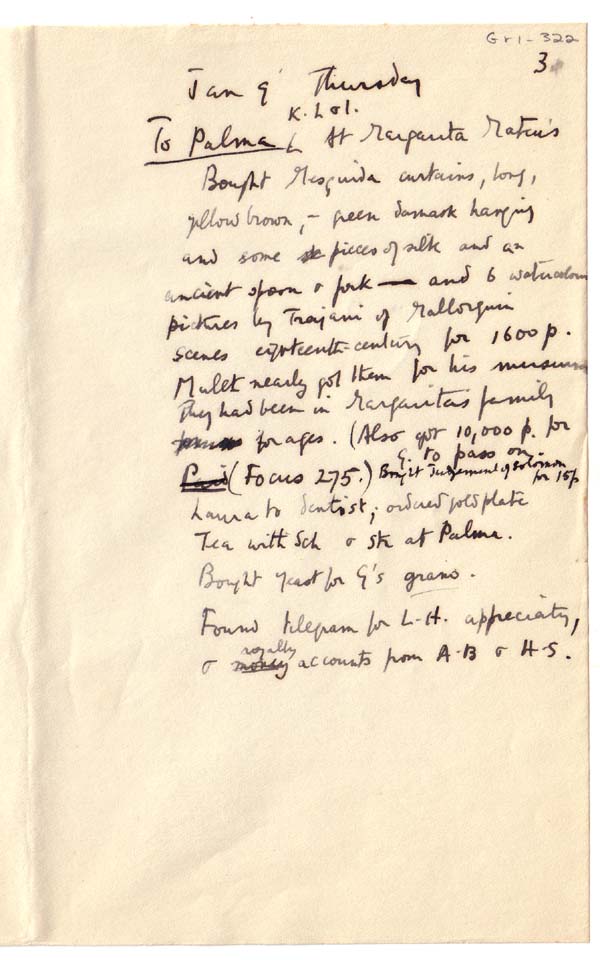 Gr1-322
3
Jan 9 Thursday
K. L & I.
To Palma At Margarita Mateu's
Bought Mesquida curtains, long,
yellow brown, - green damask hanging
and some pieces of silk and an
ancient spoon & fork — and 6 watercolour
pictures by Trajani of Mallorquin
scenes eighteenth-century for 1600 p.
Mulet nearly got them for his museum
They had been in Margarita's family
for ages. (Also got 10,000 p. for
G. to pass on.
Paid (Focus 275.) Bought Judgement of Solomon
for 15p
Laura to dentist; ordered gold plate
Tea with Sch & Ste at Palma.
Bought yeast for G's grano.
Found telegram for L-H. appreciaty,
royalty
& money accounts from A-B & H-S.